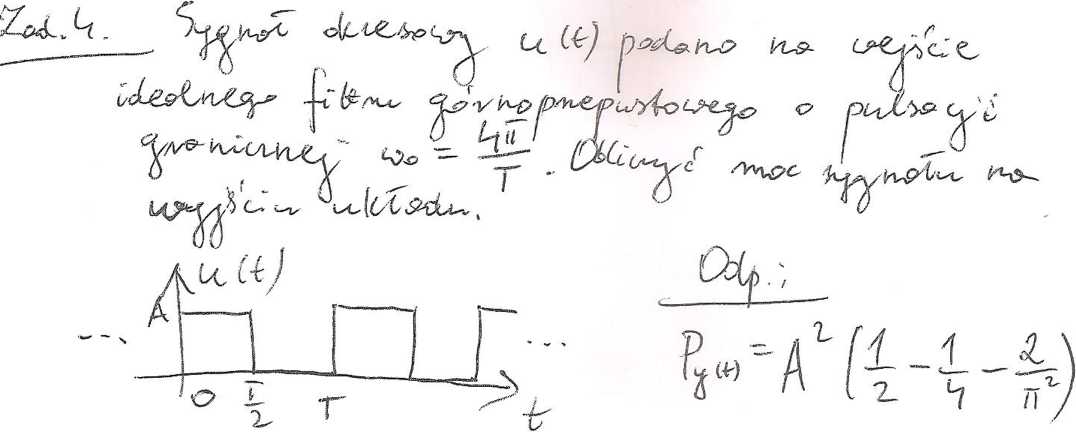 Zad. 4. Sygnał okresowy u(t) podano na wejście
idealnego filtru górnoprzepustowego o pulsacji
granicznej ω₀ = 4π/T. Obliczyć moc sygnału na
wyjściu układu.
u(t)
A
... ...
0 T/2 T t
Odp.:
P_y(t) = A² (1/2 - 1/4 - 2/π²)